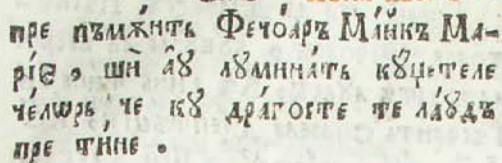 пре пъмѫ́нть Фечоáръ Мáйкъ Ма-
рі́е , шѝ аꙋ лꙋминáть кꙋцетеле
чéлѡрь че кꙋ дрáгосте те лáꙋдъ
пре ти́не .